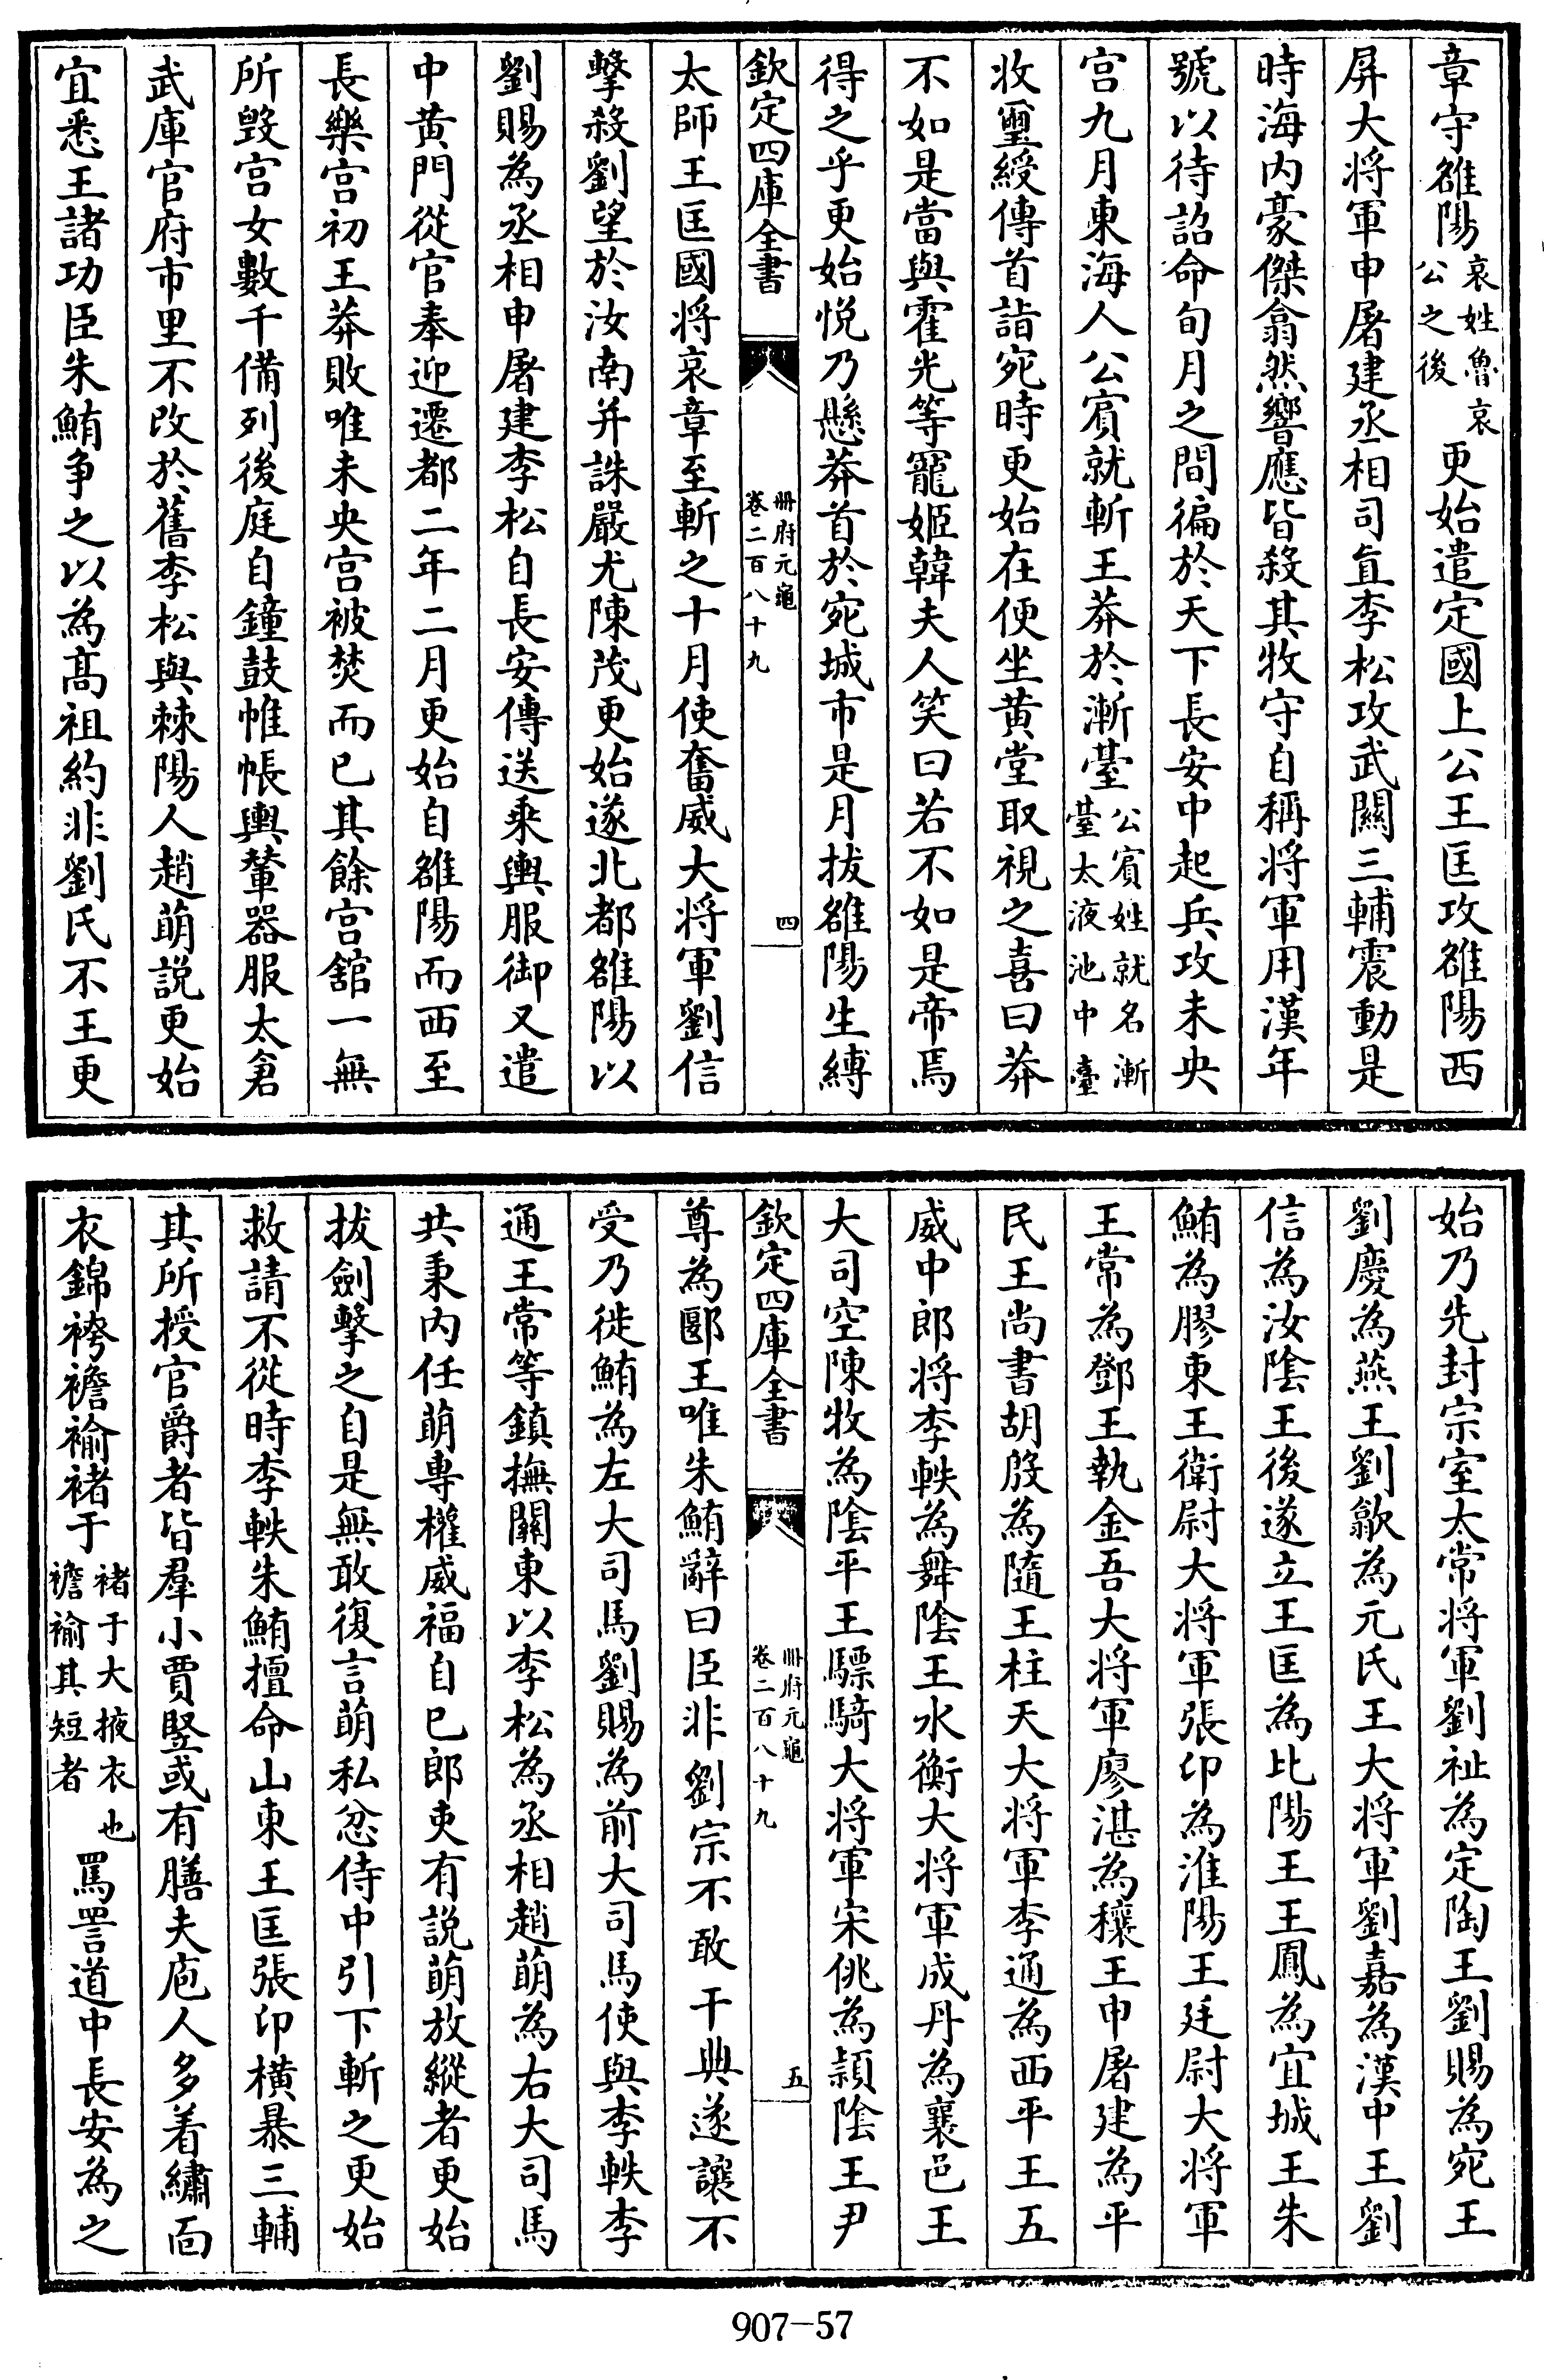 章守雒陽哀姓魯哀公之後更始遣定國上公王匡攻雒陽西
屏大將軍申屠建丞相司直李松攻武關三輔震動是
時海内豪傑翕然響應皆殺其牧守自稱將軍用漢年
號以待詔命旬月之間徧於天下長安中起兵攻未央
宮九月東海人公賔就斬王莽於漸臺公賔姓就名漸臺太液池中臺
收璽綬傳首詣宛時更始在便坐黄堂取視之喜曰莽
不如是當與霍光等寵姬韓夫人笑曰若不如是帝焉
得之乎更始悦乃懸莽首於宛城市是月拔雒陽生縛
欽定四庫全書 冊府元龜 卷二百八十九 四
太師王匡國將哀章至斬之十月使奮威大將軍劉信
擊殺劉望於汝南并誅嚴尤陳茂更始遂北都雒陽以
劉賜為丞相申屠建李松自長安傳送乘輿服御又遣
中黄門從官奉迎遷都二年二月更始自雒陽而西至
長樂宮初王莽敗唯未央宮被焚而已其餘宮舘一無
所毁宮女數千備列後庭自鐘鼓帷帳輿輦器服太倉
武庫官府市里不改於舊李松與棘陽人趙萌説更始
宜悉王諸功臣朱鮪争之以為髙祖約非劉氏不王更
始乃先封宗室太常將軍劉祉為定陶王劉賜為宛王
劉慶為燕王劉歙為元氏王大將軍劉嘉為漢中王劉
信為汝陰王後遂立王匡為比陽王王鳳為宜城王朱
鮪為膠東王衛尉大將軍張卬為淮陽王廷尉大將軍
王常為鄧王執金吾大將軍廖湛為穰王申屠建為平
民王尚書胡殷為隨王柱天大將軍李通為西平王五
威中郎將李軼為舞陰王水衡大將軍成丹為襄邑王
大司空陳牧為陰平王驃騎大將軍宋佻為頴陰王尹
欽定四庫全書 冊府元龜 卷二百八十九 五
尊為郾王唯朱鮪辭曰臣非劉宗不敢干典遂讓不
受乃徙鮪為左大司馬劉賜為前大司馬使與李軼李
通王常等鎮撫關東以李松為丞相趙萌為右大司馬
共秉内任萌專權威福自已郎吏有説萌放縱者更始
拔劍擊之自是無敢復言萌私忿侍中引下斬之更始
救請不從時李軼朱鮪擅命山東王匡張卬橫暴三輔
其所授官爵者皆羣小賈竪或有膳夫庖人多着繡面
衣錦袴襜褕褚于褚于大掖衣也襜褕其短者罵詈道中長安為之
907-57